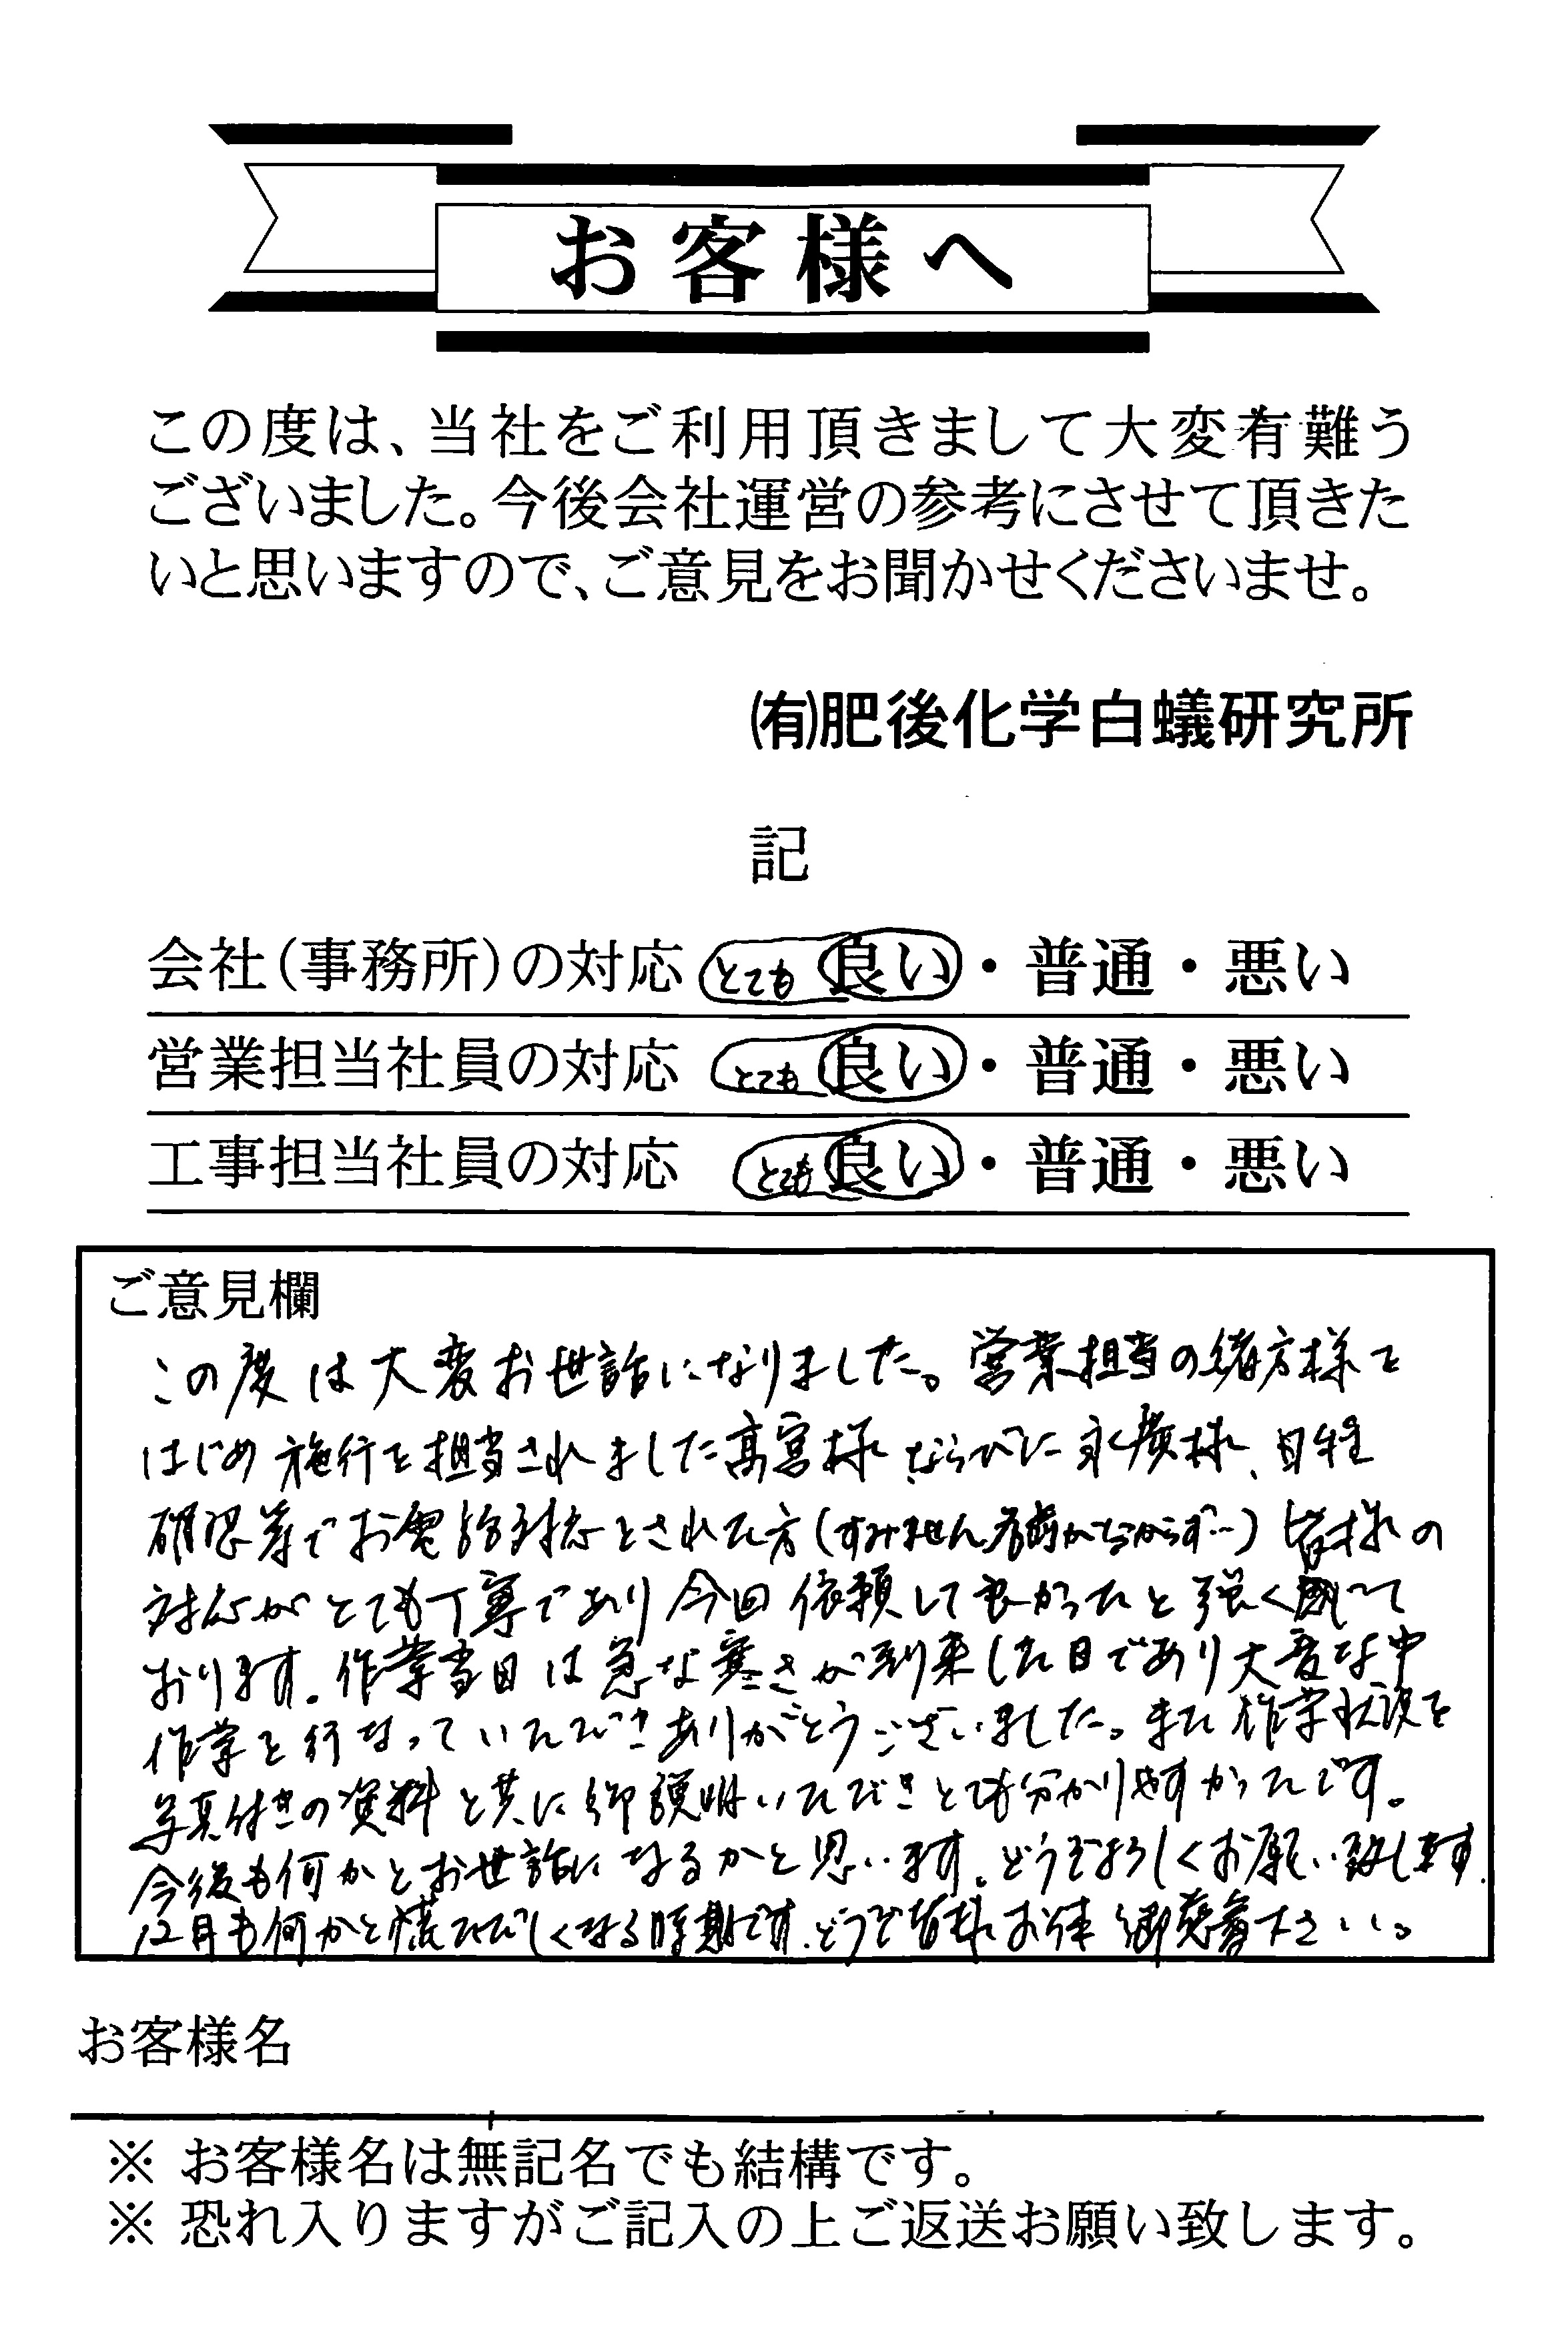 お客様へ
この度は、当社をご利用頂きまして大変有難う
ございました。今後会社運営の参考にさせて頂きた
いと思いますので、ご意見をお聞かせくださいませ。
㈲肥後化学白蟻研究所
記
会社(事務所)の対応 とても 良い・普通・悪い
営業担当社員の対応 とても 良い・普通・悪い
工事担当社員の対応 とても 良い・普通・悪い
ご意見欄
この度は大変お世話になりました。営業担当の緒方様を
はじめ施行を担当されました髙宮様ならびに永廣様、日程
確認等でお電話対応をされた方(すみません名前がわからず…)皆様の
対応がとても丁寧であり今回依頼して良かったと強く思って
おります。作業当日は急な寒さが到来した日であり大変な中
作業を行なっていただきありがとうございました。また作業状況を
写真付きの資料と共に御説明いただきとても分かりやすかったです。
今後も何かとお世話になるかと思います。どうぞよろしくお願い致します。
12月も何かと慌ただしくなる時期です。どうぞ皆様お体御慈愛下さい。
お客様名
※ お客様名は無記名でも結構です。
※ 恐れ入りますがご記入の上ご返送お願い致します。